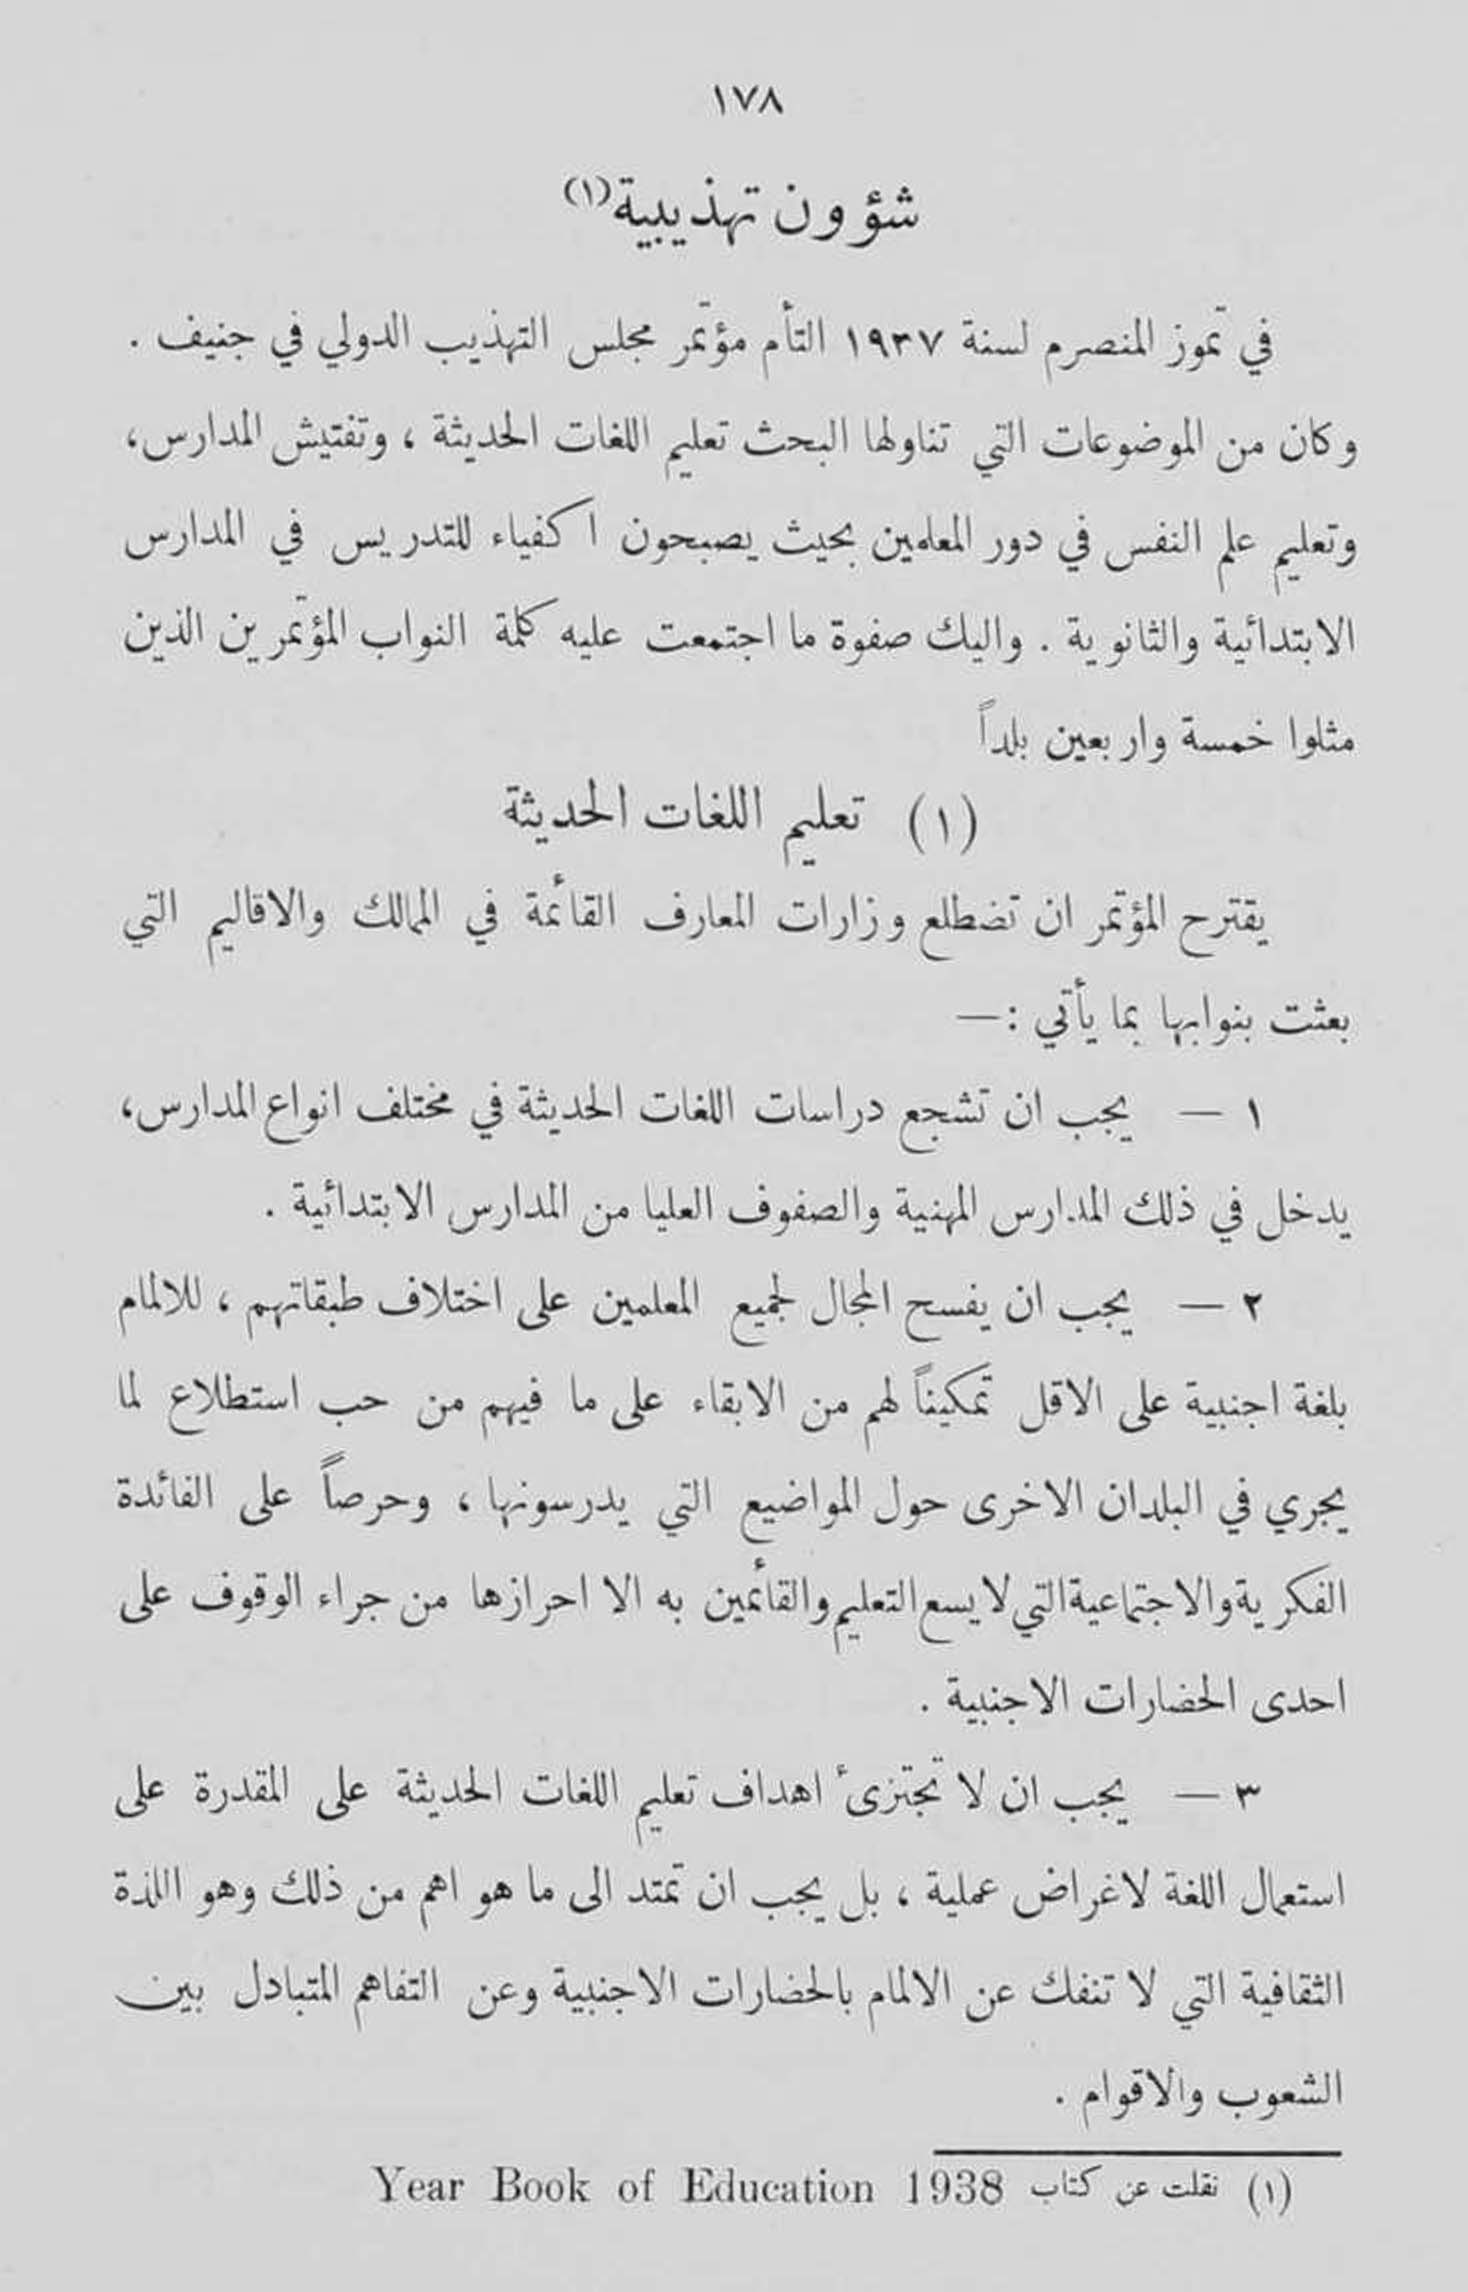 ١٧٨
شؤون تهذيبية(١)
في تموز المنصرم لسنة ١٩٣٧ التأم مؤتمر مجلس التهذيب الدولي في جنيف .
وكان من الموضوعات التي تناولها البحث تعليم اللغات الحديثة ، وتفتيش المدارس،
وتعليم علم النفس في دور المعلمين بحيث يصبحون اكفياء للتدريس في المدارس
الابتدائية والثانوية . واليك صفوة ما اجتمعت عليه كلمة النواب المؤتمرين الذين
مثلوا خمسة واربعين بلداً
(١) تعليم اللغات الحديثة
يقترح المؤتمر ان تضطلع وزارات المعارف القائمة في الممالك والاقاليم التي
بعثت بنوابها بما يأتي :—
١ — يجب ان تشجع دراسات اللغات الحديثة في مختلف انواع المدارس،
يدخل في ذلك المدارس المهنية والصفوف العليا من المدارس الابتدائية .
٢ — يجب ان يفسح المجال لجميع المعلمين على اختلاف طبقاتهم ، للالمام
بلغة اجنبية على الاقل تمكيناً لهم من الابقاء على ما فيهم من حب استطلاع لما
يجري في البلدان الاخرى حول المواضيع التي يدرسونها ، وحرصاً على الفائدة
الفكرية والاجتماعية التي لا يسع التعليم والقائمين به الا احرازها من جراء الوقوف على
احدى الحضارات الاجنبية .
٣ — يجب ان لا تجتزئ اهداف تعليم اللغات الحديثة على المقدرة على
استعمال اللغة لاغراض عملية ، بل يجب ان تمتد الى ما هو اهم من ذلك وهو اللذة
الثقافية التي لا تنفك عن الالمام بالحضارات الاجنبية وعن التفاهم المتبادل بين
الشعوب والاقوام .
(١) نقلت عن كتاب Year Book of Education 1938